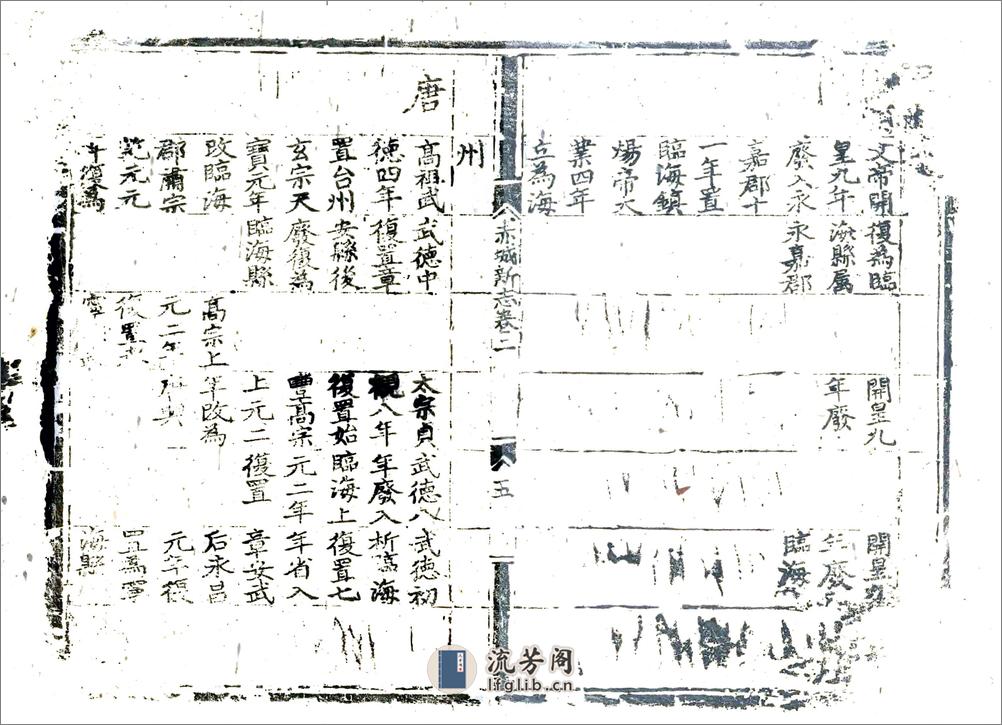 文帝開
皇九年
廢入永
嘉郡十
一年置
臨海鎮
煬帝大
業四年
立為海
復為臨
海縣属
永嘉郡
開皇九
年廢
開皇九
年廢
臨海
赤城新志卷二
五
州
唐
高祖武
德四年
置台州
玄宗天
寶元年
改臨海
郡肅宗
乾元元
年復為
武德中
復置章
安縣後
廢復為
臨海縣
高宗上
元二年
復置
寧
太宗貞
觀八年
復置始
豐高宗
上元二
年改為
武德八
年廢入
臨海上
元二年
復置
武德初
析臨海
復置七
年省入
章安武
后永昌
元年復
置為寧
海縣
流芳阁
lfglib.cn